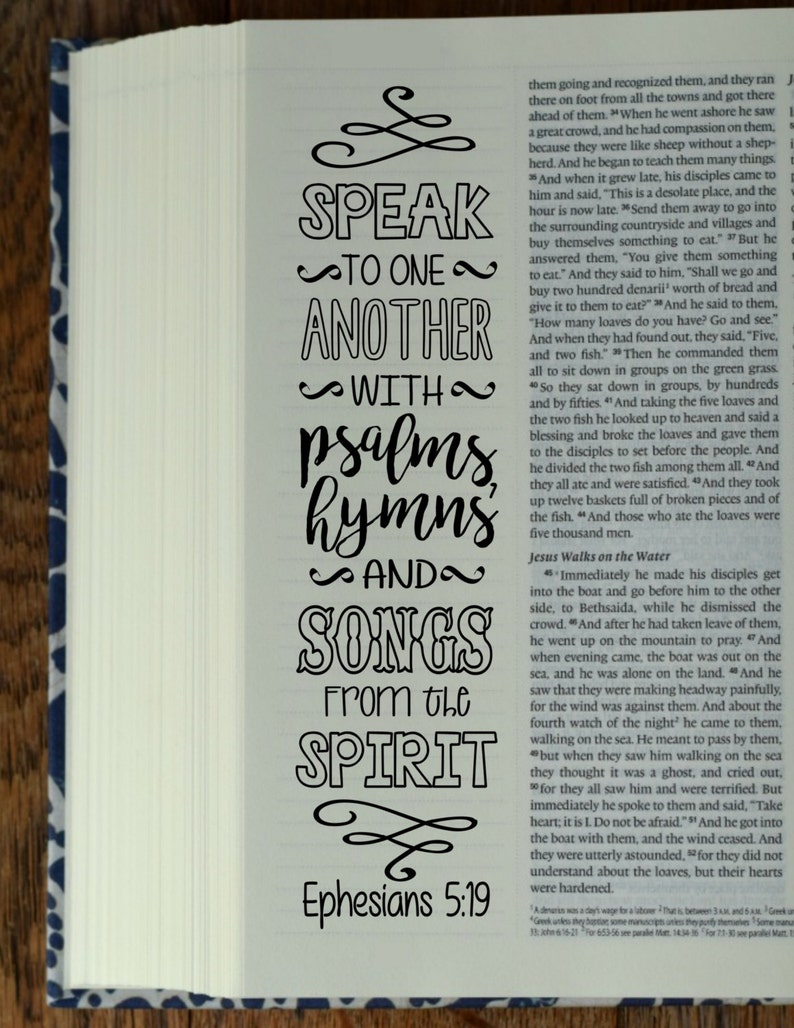 SPEAK
TO ONE
ANOTHER
WITH
psalms,
hymns
AND
SONGS
from the
SPIRIT
Ephesians 5:19
them going and recognized them, and they ran
there on foot from all the towns and got there
ahead of them. 34 When he went ashore he saw
a great crowd, and he had compassion on them,
because they were like sheep without a shep-
herd. And he began to teach them many things.
35 And when it grew late, his disciples came to
him and said, “This is a desolate place, and the
hour is now late. 36 Send them away to go into
the surrounding countryside and villages and
buy themselves something to eat.” 37 But he
answered them, “You give them something
to eat.” And they said to him, “Shall we go and
buy two hundred denarii1 worth of bread and
give it to them to eat?” 38 And he said to them,
“How many loaves do you have? Go and see.”
And when they had found out, they said, “Five,
and two fish.” 39 Then he commanded them
all to sit down in groups on the green grass.
40 So they sat down in groups, by hundreds
and by fifties. 41 And taking the five loaves and
the two fish he looked up to heaven and said a
blessing and broke the loaves and gave them
to the disciples to set before the people. And
he divided the two fish among them all. 42 And
they all ate and were satisfied. 43 And they took
up twelve baskets full of broken pieces and of
the fish. 44 And those who ate the loaves were
five thousand men.
Jesus Walks on the Water
45 Immediately he made his disciples get
into the boat and go before him to the other
side, to Bethsaida, while he dismissed the
crowd. 46 And after he had taken leave of them,
he went up on the mountain to pray. 47 And
when evening came, the boat was out on the
sea, and he was alone on the land. 48 And he
saw that they were making headway painfully,
for the wind was against them. And about the
fourth watch of the night2 he came to them,
walking on the sea. He meant to pass by them,
49 but when they saw him walking on the sea
they thought it was a ghost, and cried out,
50 for they all saw him and were terrified. But
immediately he spoke to them and said, “Take
heart; it is I. Do not be afraid.” 51 And he got into
the boat with them, and the wind ceased. And
they were utterly astounded, 52 for they did not
understand about the loaves, but their hearts
were hardened.
1 A denarius was a day's wage for a laborer 2 That is, between 3 A.M. and 6 A.M. 3 Greek
4 Greek unless they baptize; some manuscripts unless they purify themselves 5 Some
33; John 6:16-21 7 For 6:53-56 see parallel Matt. 14:34-36 7 For 7:1-30 see parallel Matt.